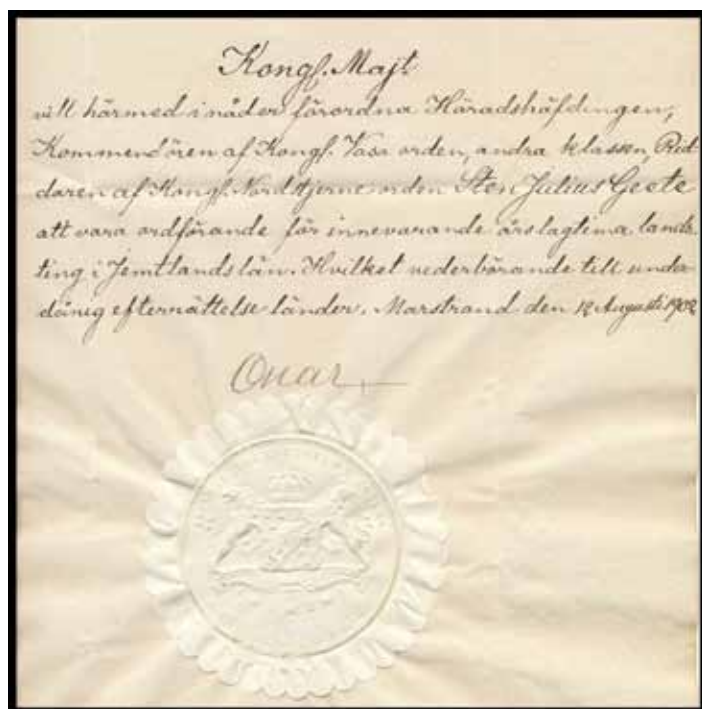 Kongl. Majt.
vill härmed i nåder förordna Häradshöfdingen,
Kommendören af Kongl. Vasa orden, andra klassen, Rid-
daren af Kongl. Nordstjerne orden Sten Julius Geete
att vara ordförande för innevarande års lagtima lands-
ting i Jemtlands län. Hvilket vederbörande till under-
dånig efterrättelse länder. Marstrand den 12 Augusti 1902
Oscar